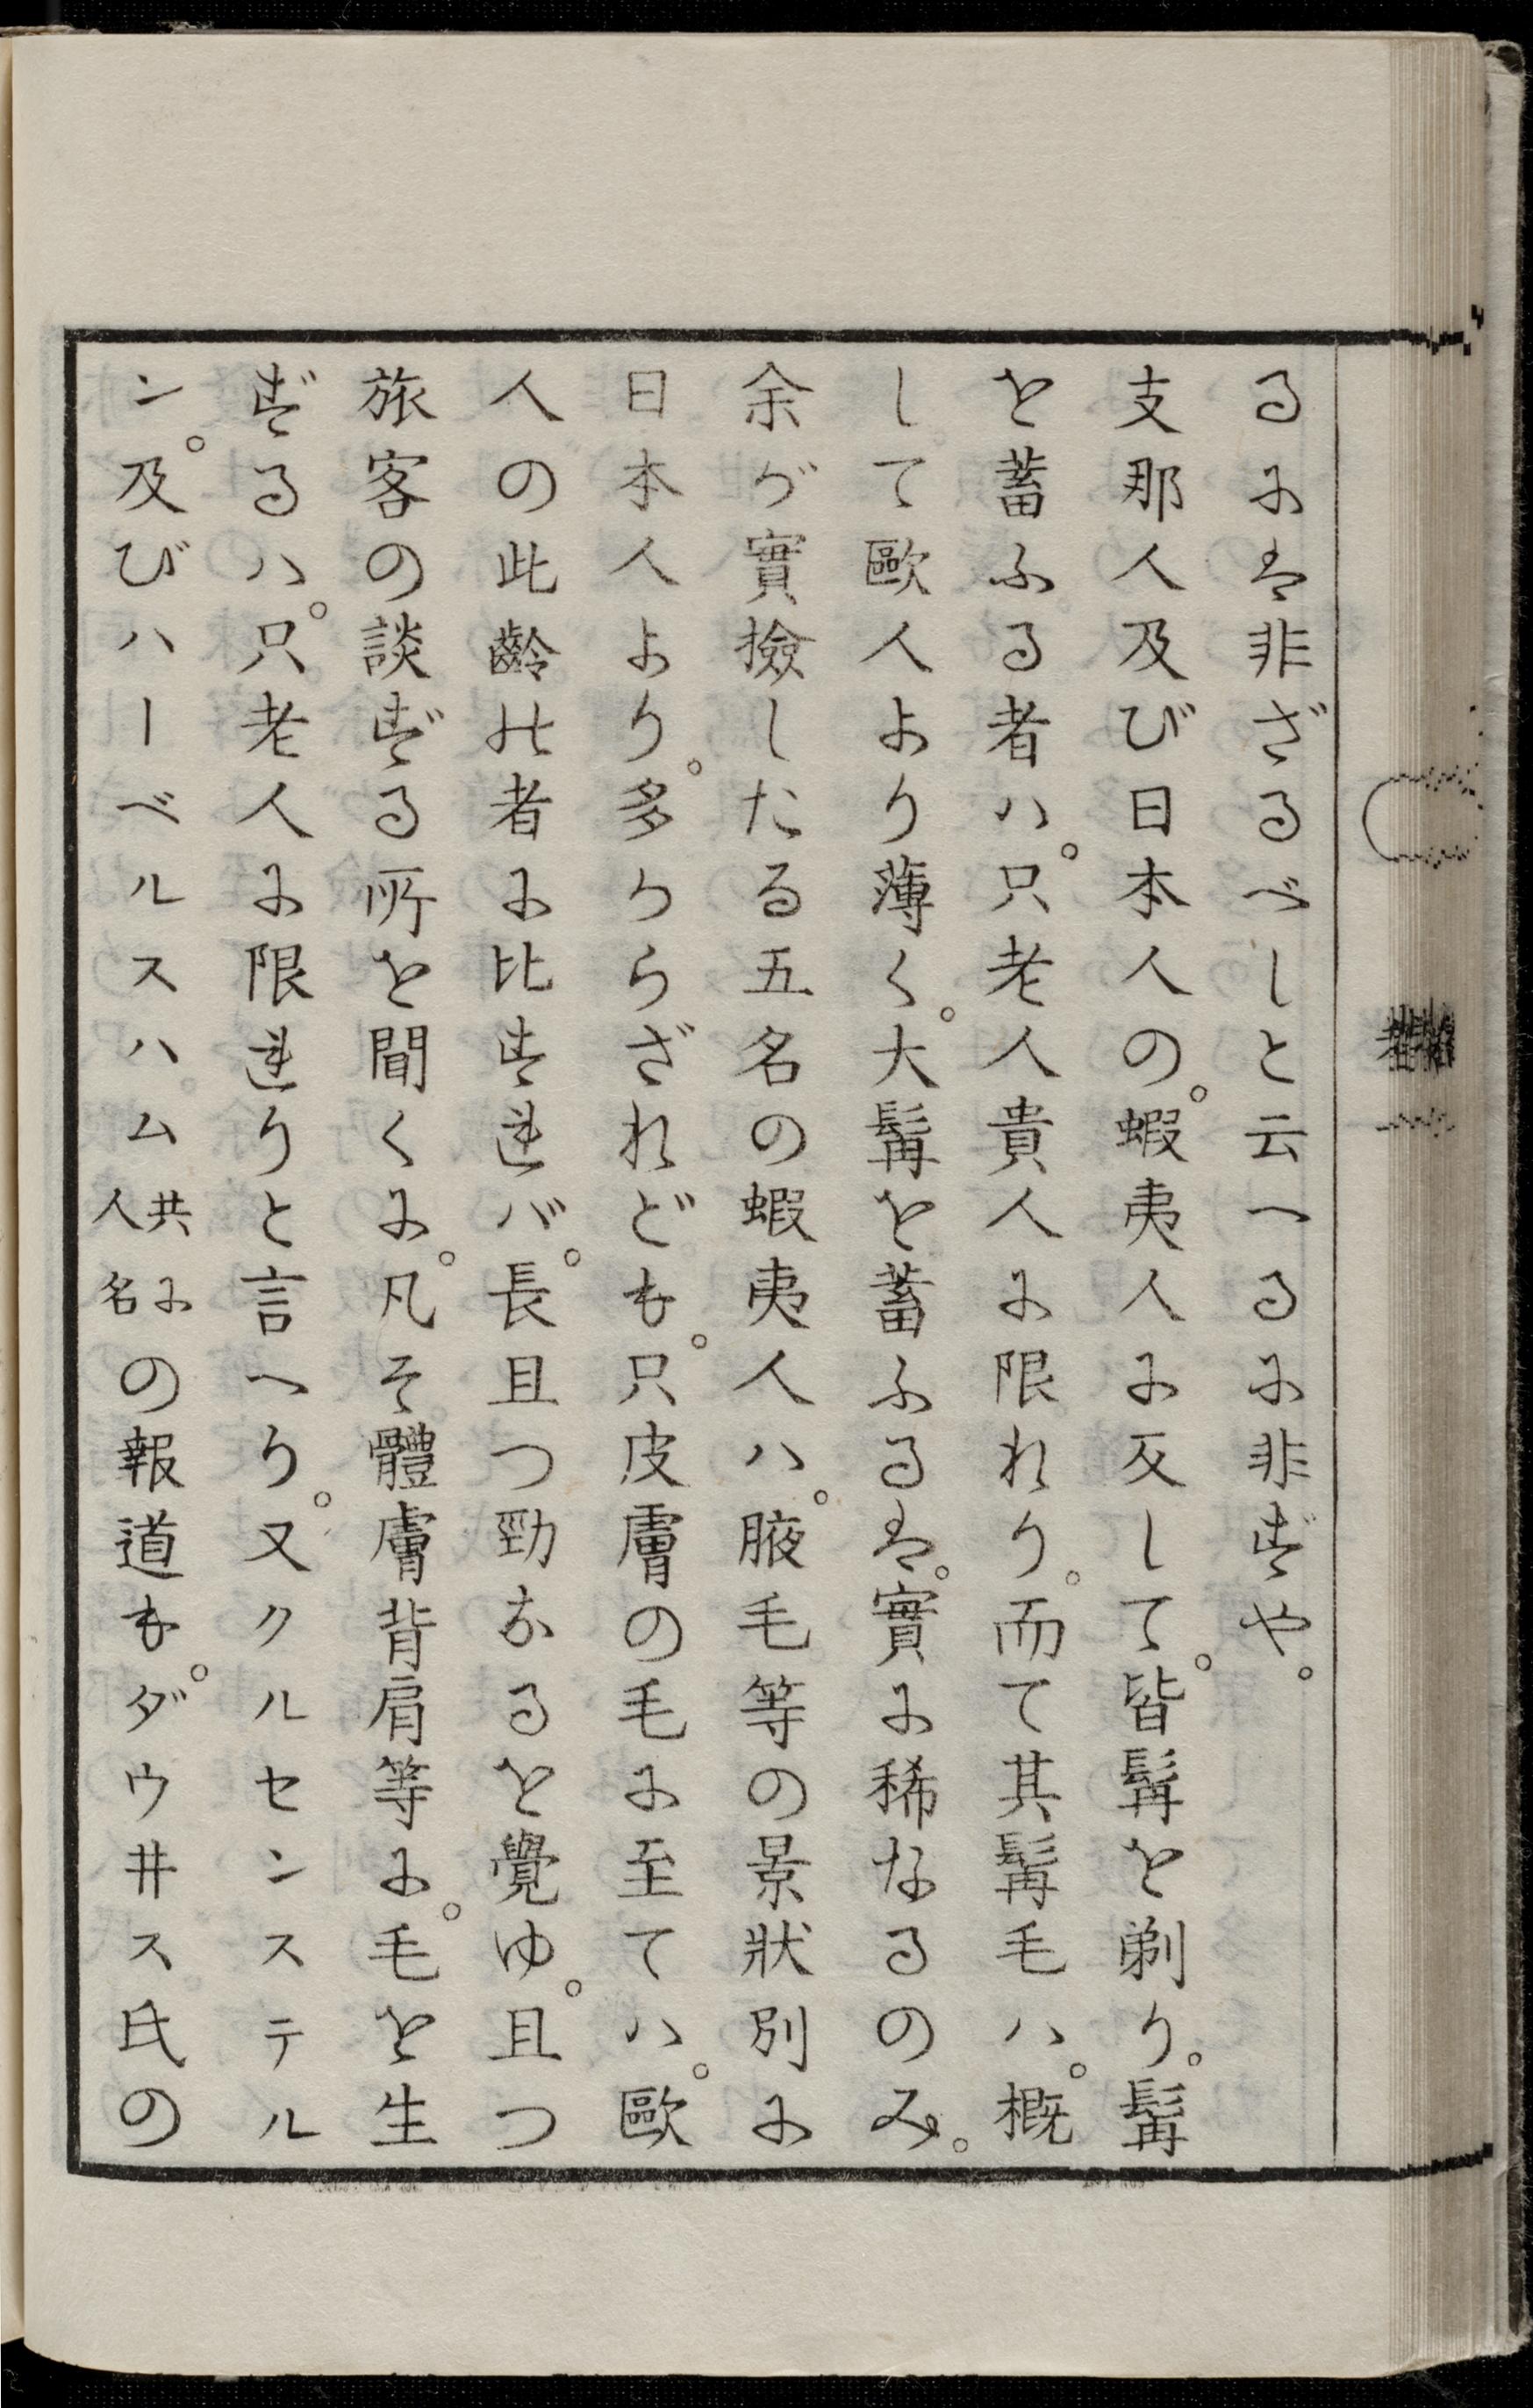 るには非ざるべしと云へるに非ずや。
支那人及び日本人の。蝦夷人に反して。皆髯を剃り。髯
を蓄ふる者ハ。只老人貴人に限れり。而て其髯毛ハ。概
して歐人より薄く。大髯を蓄ふるは。實に稀なるのみ。
余が實撿したる五名の蝦夷人ハ。腋毛等の景狀別に
日本人より。多からざれども。只皮膚の毛に至てハ。歐
人の此齡の者に比すれバ。長且つ勁なるを覺ゆ。且つ
旅客の談ずる所を聞くに。凡そ體膚背肩等に。毛を生
ずるハ。只老人に限れりと言へり。又クルセンステル
ン。及びハーベルスハム共に人名の報道も。ダウ井ス氏の